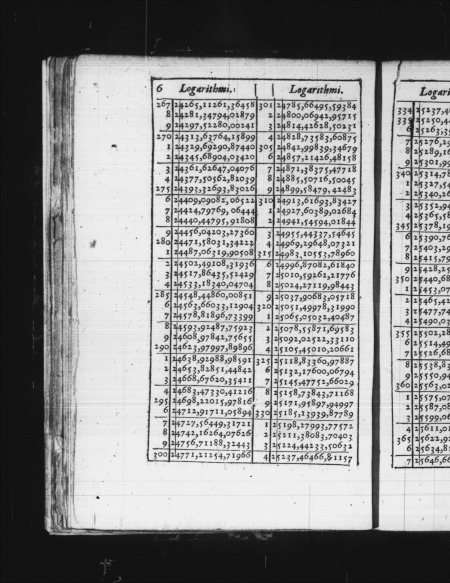 6 Logarithmi. Logarithmi.
267 24265,11261,36458 301 24785,66495,59384
8 24281,34794,02879 2 24800,06942,95715
9 24297,52280,00241 3 24814,42628,50231
270 24313,63764,15899 4 24828,73583,60875
1 24329,69290,87440 305 24842,99839,34679
2 24345,68904,03420 6 24857,21426,48158
3 24361,62647,04076 7 24871,38375,47718
4 24377,50562,82039 8 24885,50716,50045
275 24393,32693,83026 9 24899,58479,42483
6 24409,09082,06522 310 24913,61693,83427
7 24424,79769,06444 1 24927,60389,02684
8 24440,44795,91808 2 24941,54594,01844
9 24456,04203,27360 3 24955,44337,54645
280 24471,58031,34222 4 24969,29648,07321
1 24487,06319,90508 315 24983,10553,78960
2 24502,49108,31936 6 24996,87082,61840
3 24517,86435,52429 7 25010,59262,21776
4 24533,18340,04704 8 25024,27119,98443
285 24548,44860,00851 9 25037,90683,05718
6 24563,66033,12904 320 25051,49978,31990
7 24578,81896,73399 1 25065,05032,40487
8 24593,92487,75923 2 25078,55871,69583
9 24608,97842,75655 3 25092,02522,33110
290 24623,97997,89896 4 25105,45010,20661
1 24638,92988,98591 325 25118,83360,97887
2 24653,82851,44842 6 25132,17600,06794
3 24668,67620,35411 7 25145,47752,66029
4 24683,47330,41216 8 25158,73843,71168
295 24698,22015,97816 9 25171,95897,94997
6 24712,91711,05894 330 25185,13939,87789
7 24727,56449,31721 1 25198,27993,77572
8 24742,16264,07626 2 25211,38083,70403
9 24756,71188,32443 3 25224,44233,50632
300 24771,21254,71966 4 25237,46466,81157
Logari
334 25237,4
335 25250,4
6 25263,3
7 25276,2
8 25289,1
9 25301,9
340 25314,7
1 25327,5
2 25340,2
3 25352,9
4 25365,5
345 25378,1
6 25390,7
7 25403,2
8 25415,7
9 25428,2
350 25440,6
1 25453,0
2 25465,4
3 25477,7
4 25490,0
355 25502,2
6 25514,4
7 25526,6
8 25538,8
9 25550,9
360 25563,0
1 25575,0
2 25587,0
3 25599,0
4 25611,0
365 25622,9
6 25634,8
7 25646,6